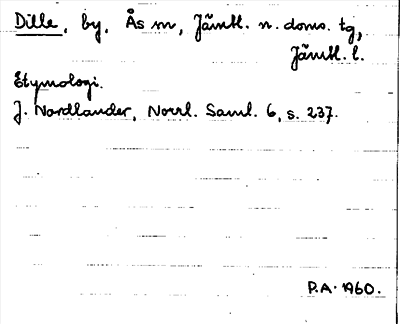 Dille, by, Ås sn, Jämtl. n. doms. tg,
Jämtl. l.
Etymologi.
J. Nordlander, Norrl. Saml. 6, s. 237.
P.A. 1960.